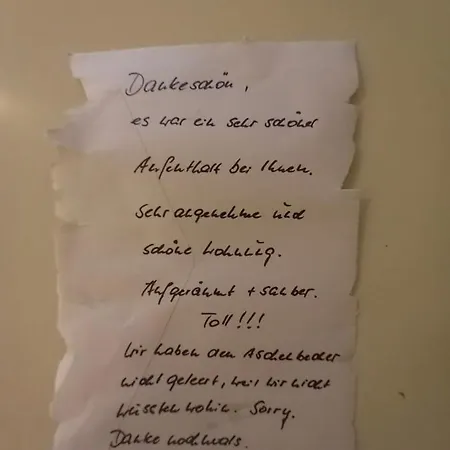 Dankeschön,
es war ein sehr schöner
Aufenthalt bei Ihnen.
Sehr angenehme und
schöne Wohnung.
Aufgeräumt + sauber.
Toll!!!
Wir haben den Aschenbecher
nicht geleert, weil wir nicht
wussten wohin. Sorry.
Danke nochmals.